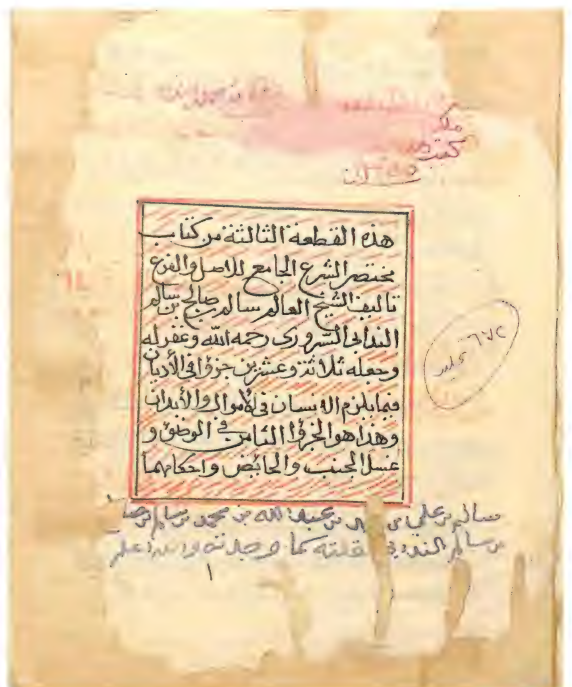 ملك
كتب
هذه القطعة الثالثة من كتاب
مختصر الشرع الجامع للاصل والفرع
تاليف الشيخ العالم سالم بن صالح بن سالم
الندابي السروري رحمه الله وغفر له
وجعله ثلاثة وعشرين جزؤا في الأديان
فيما يلزم الانسان في الأموال والأبدان
وهذا هو الجزؤ الثامن في الوضوء و
غسل الجنب والحائض واحكامهما
٦٧٢
سالم بن علي بن عبد الله بن محمد بن سالم بن
بن سالم الندابي نقلته كما وجدته والله اعلم
١